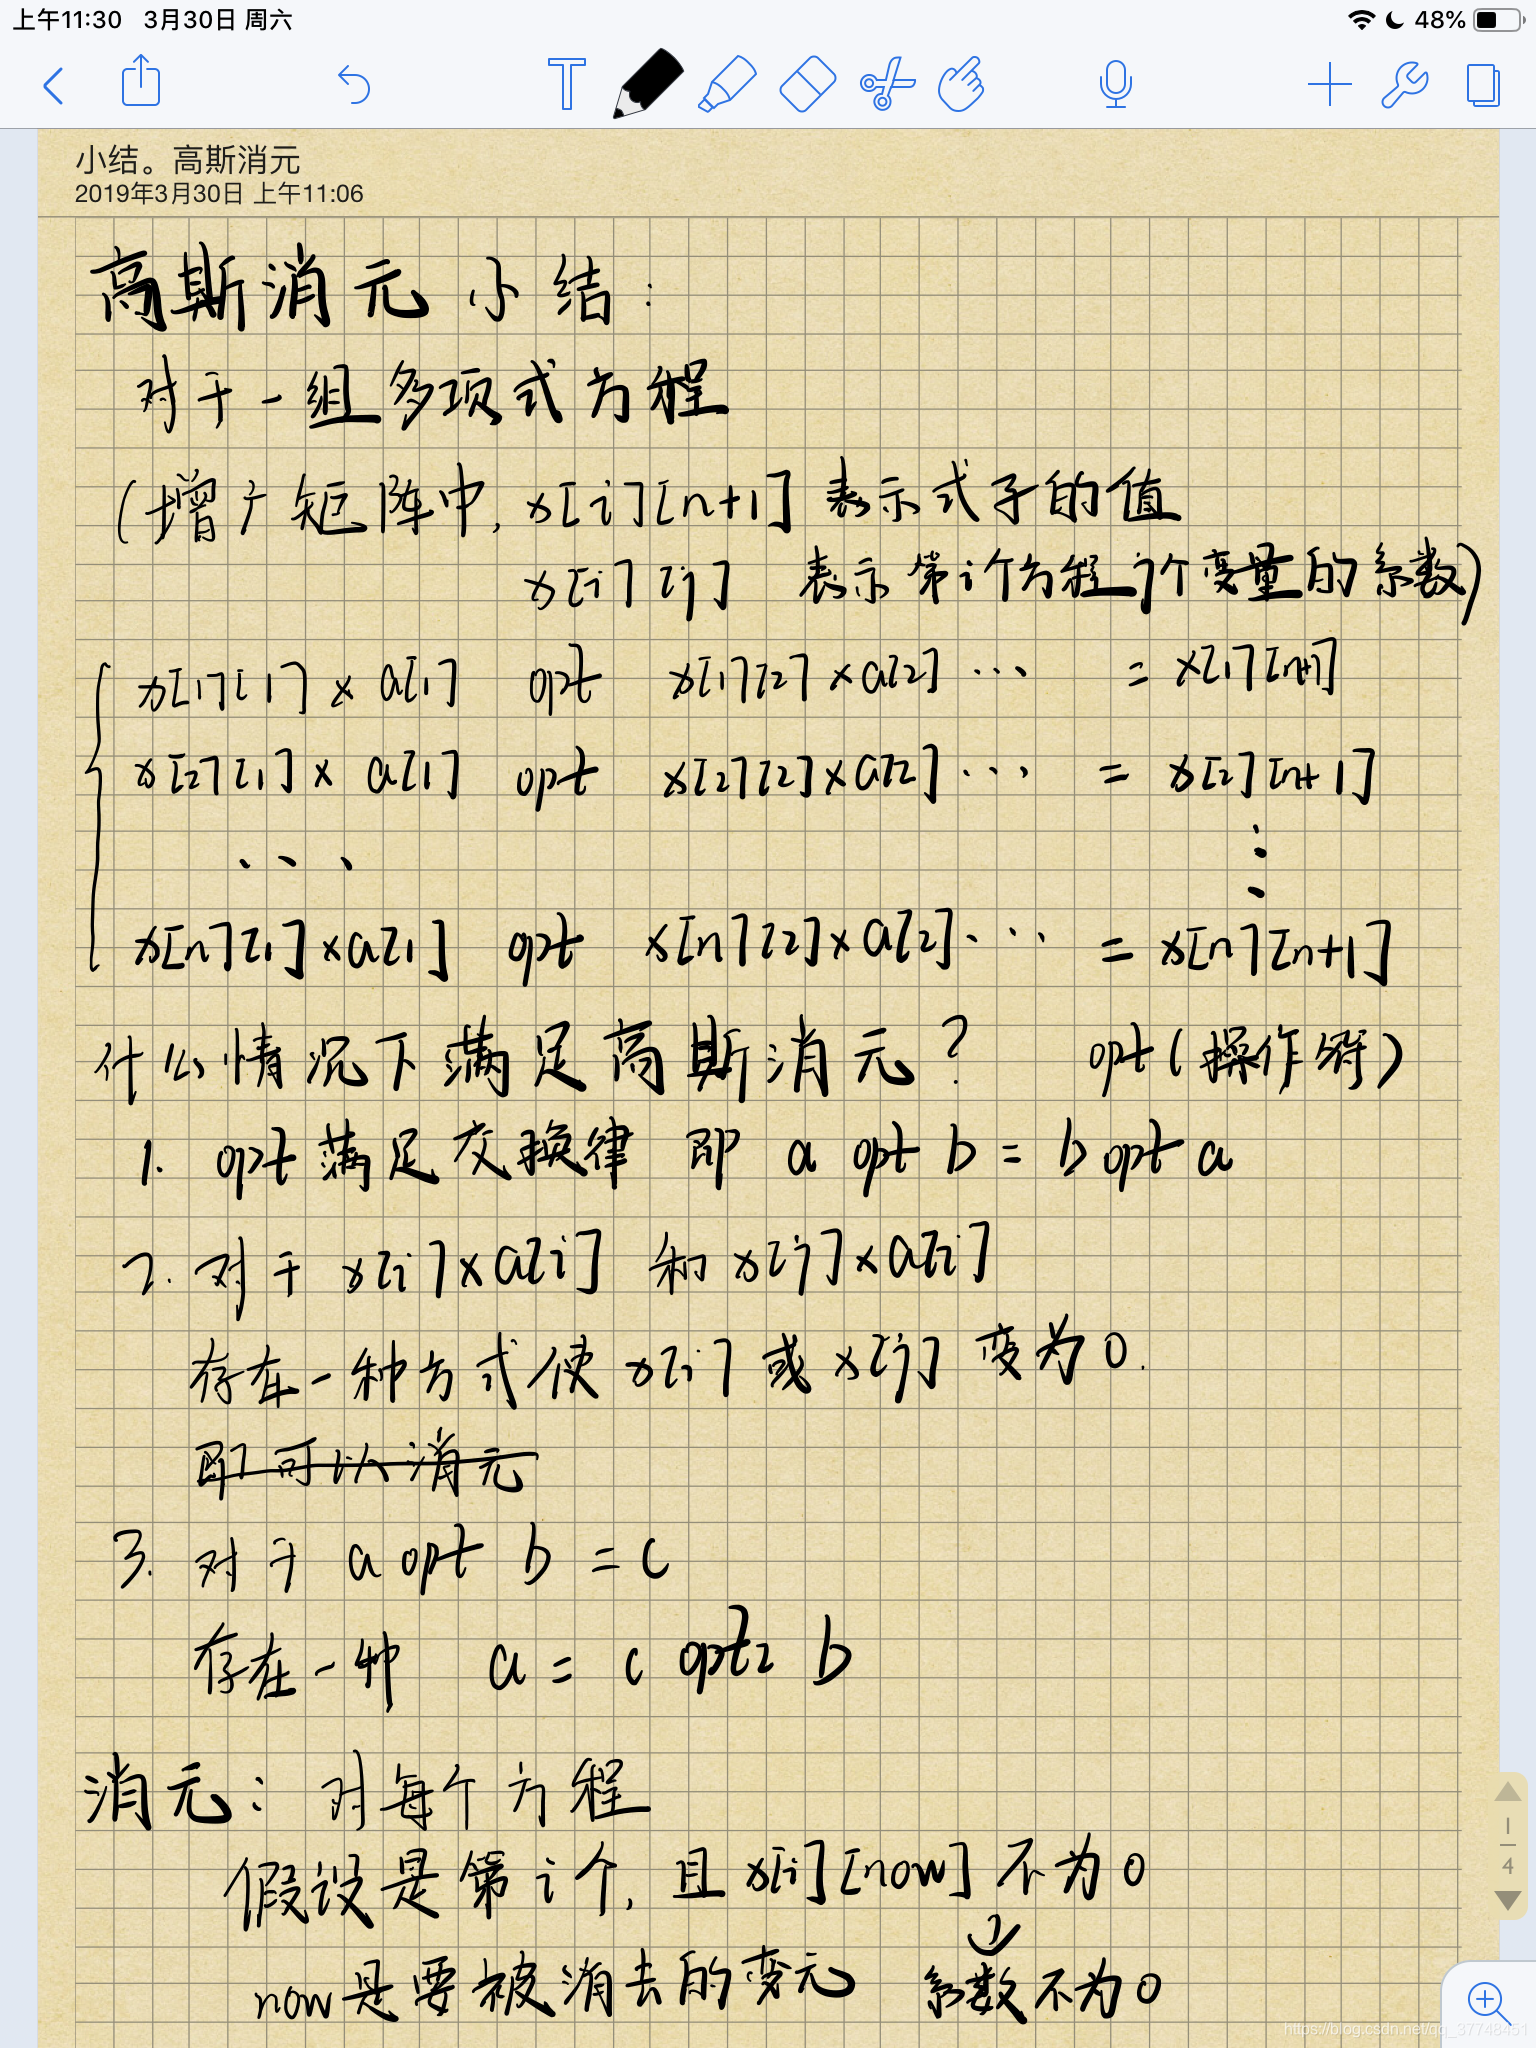 上午11:30 3月30日 周六 48%
小结。高斯消元
2019年3月30日 上午11:06
高斯消元 小结:
对于一组多项式方程
(增广矩阵中, x[i][n+1] 表示式子的值
x[i][j] 表示第i个方程j个变量的系数)
x[1][1] × a[1] opt x[1][2] × a[2] ... = x[1][n+1]
x[2][1] × a[1] opt x[2][2] × a[2] ... = x[2][n+1]
... ⋮
x[n][1] × a[1] opt x[n][2] × a[2] ... = x[n][n+1]
什么情况下满足高斯消元? opt(操作符)
1. opt满足交换律 即 a opt b = b opt a
2. 对于 x[i] × a[i] 和 x[j] × a[i]
存在一种方式使 x[i] 或 x[j] 变为0.
即可以消元
3. 对于 a opt b = c
存在一种 a = c opt2 b
消元: 对每个方程
假设是第i个, 且 x[i][now] 不为0
now是要被消去的变元 系数不为0
1
4
https://blog.csdn.net/qq_37748451